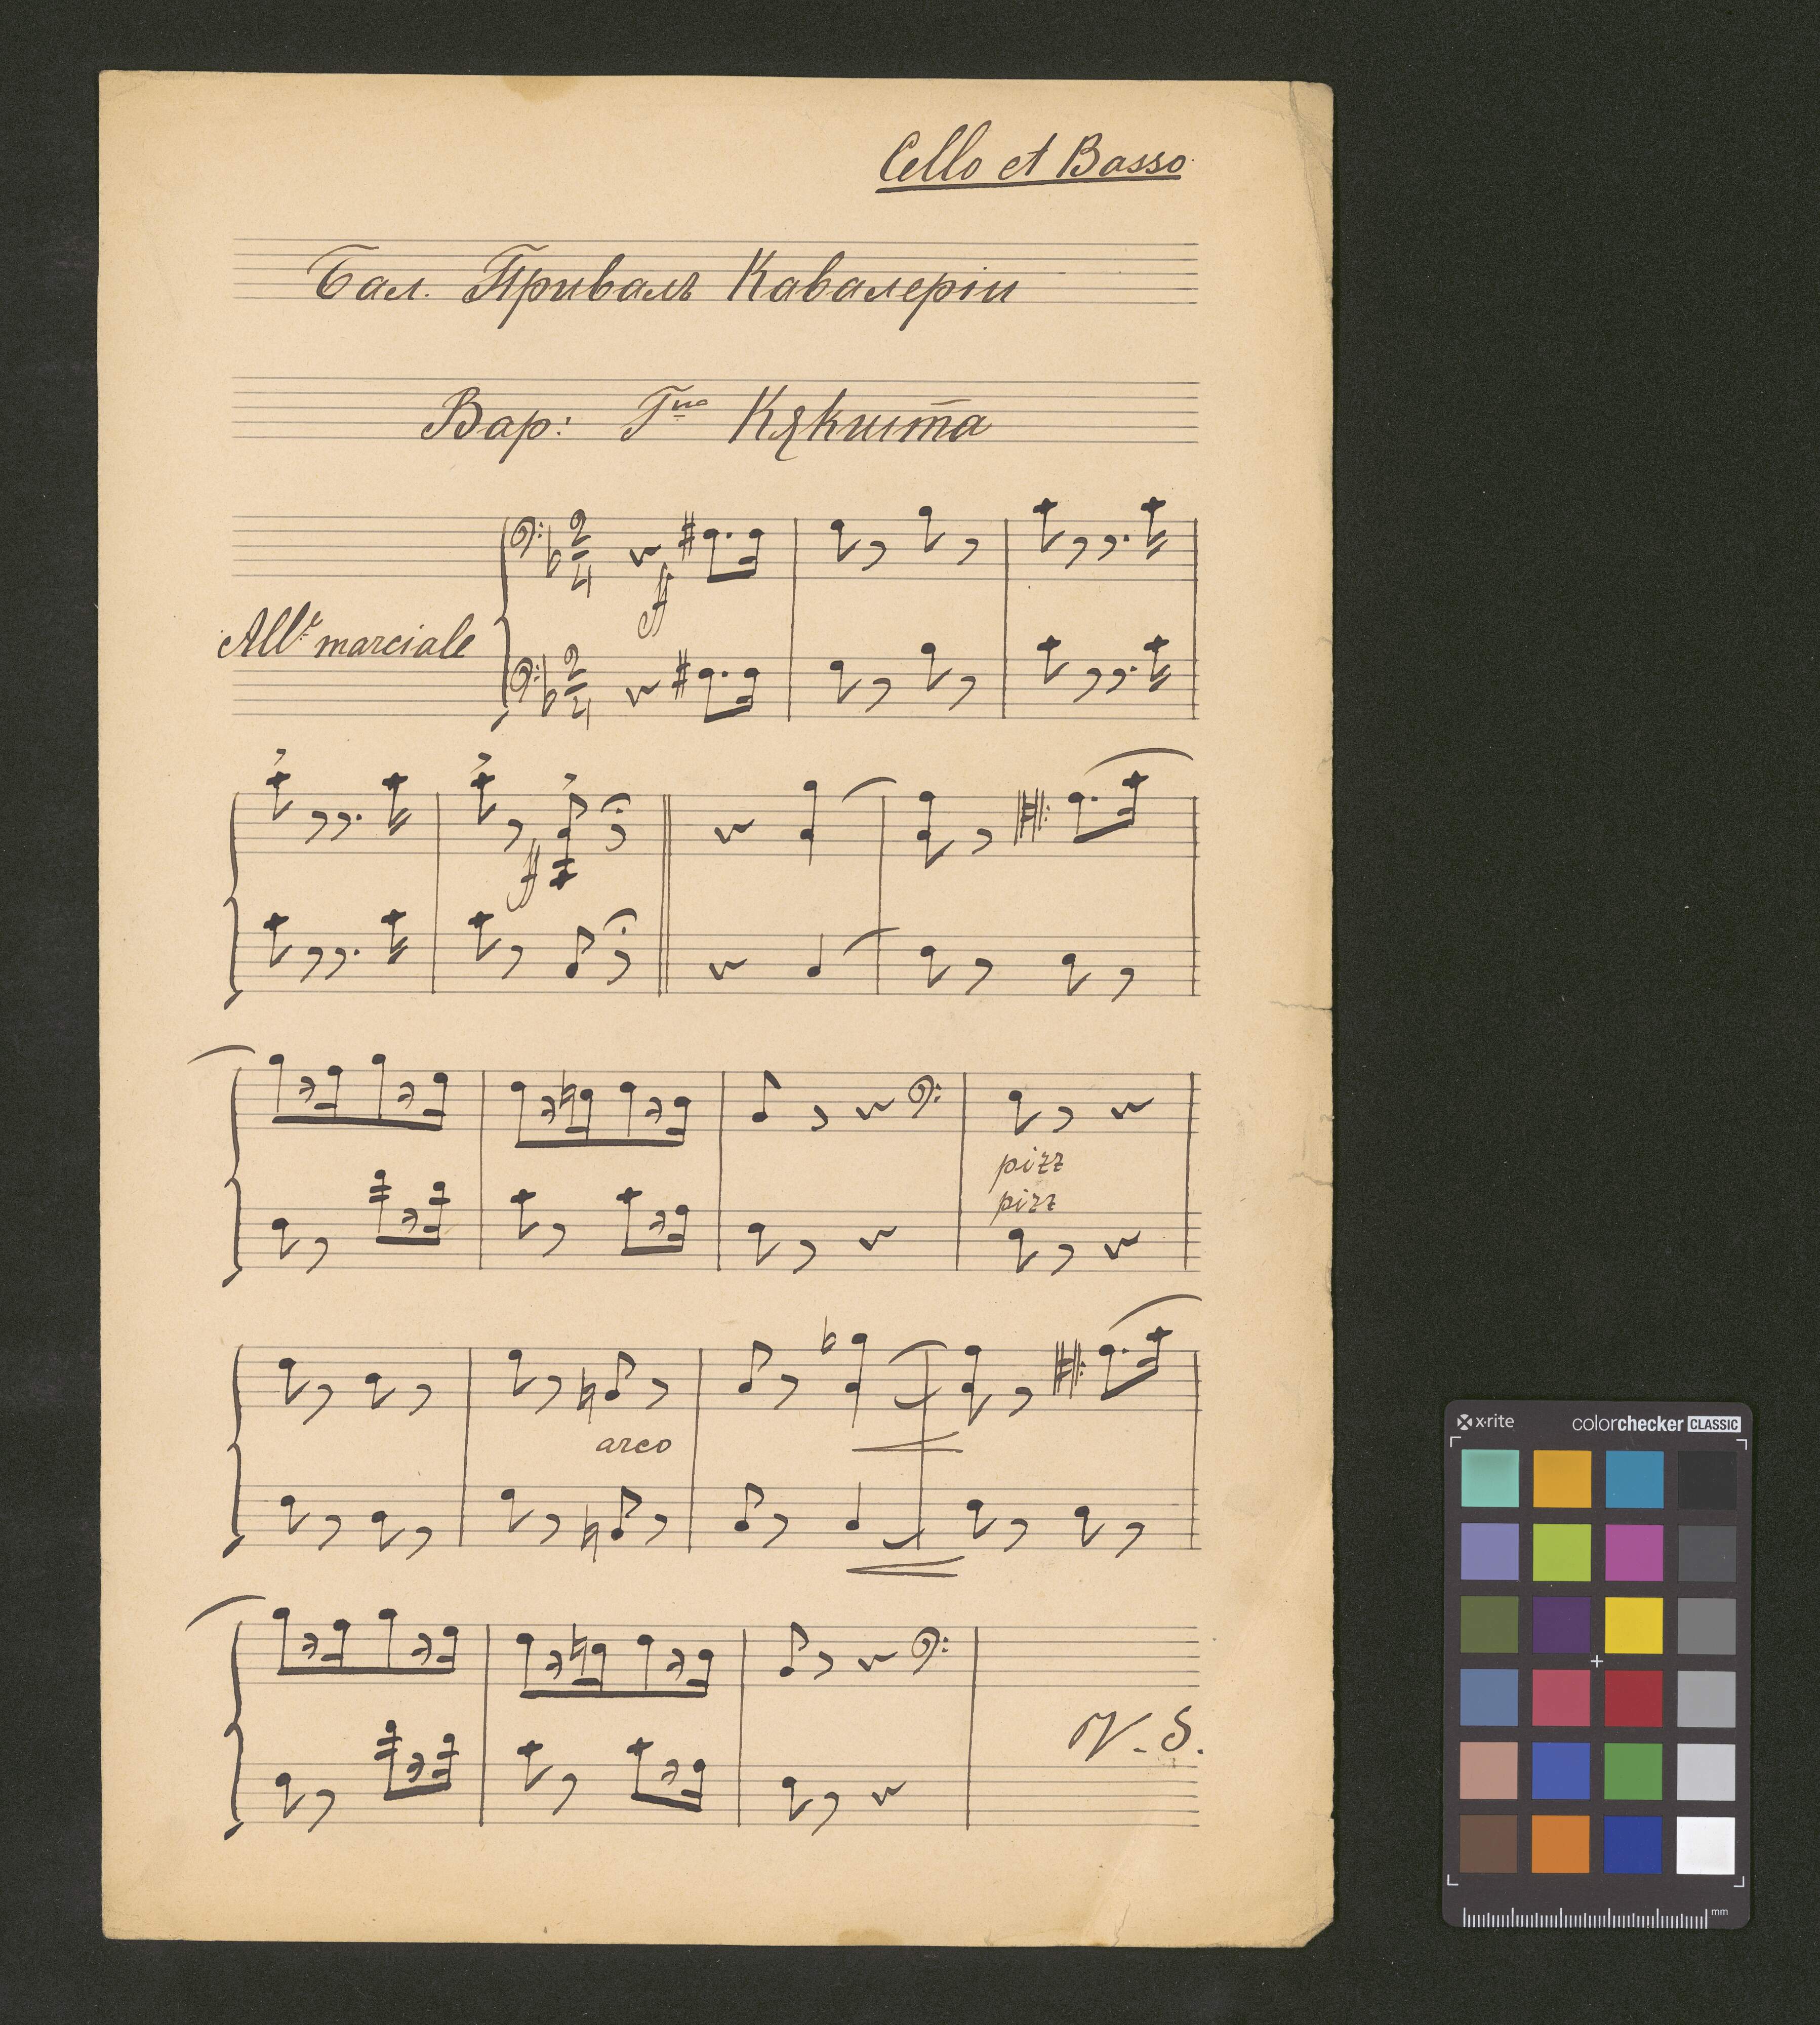 Cello et Basso.
Бал. Привалъ Кавалеріи
Вар: Гна Кякшта
ff
Allº marciale
ff
pizz
pizz
arco
V. S.
x-rite colorchecker CLASSIC
mm